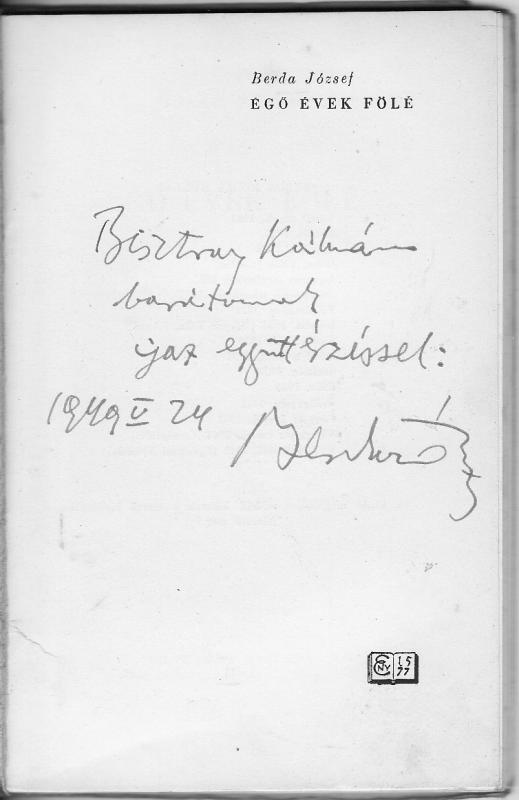 Berda József
ÉGŐ ÉVEK FÖLÉ
Bisztray Kálmán
barátomnak
igaz együttérzéssel:
1949 V 24 Berda József
EGNY 15
77